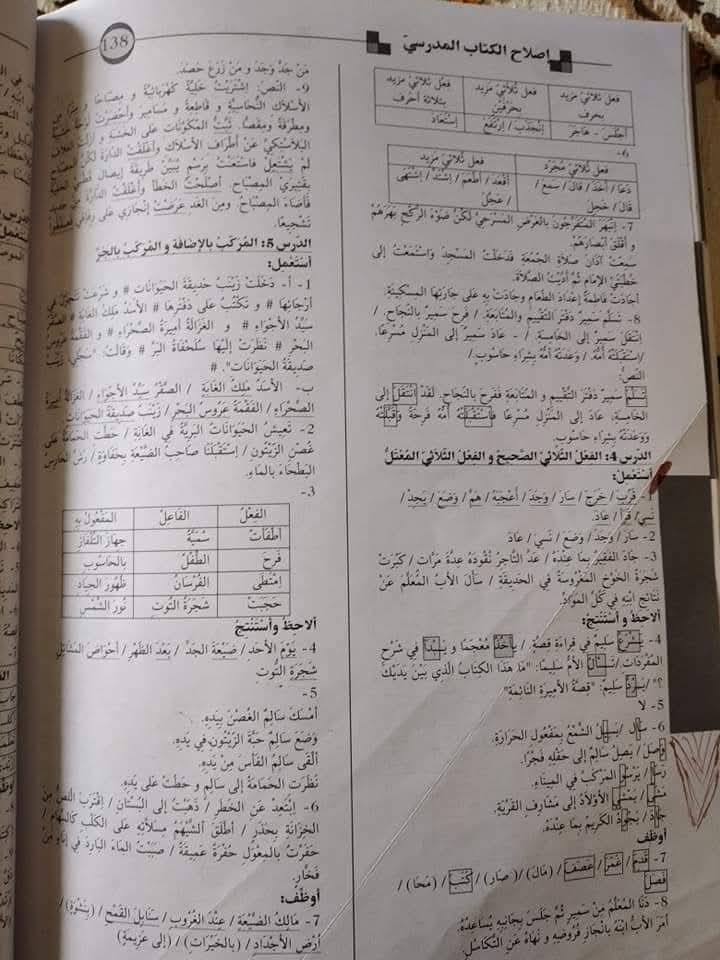 138
إصلاح الكتاب المدرسي
فعل ثلاثي مزيد بحرف
فعل ثلاثي مزيد بحرفين
فعل ثلاثي مزيد بثلاثة أحرف
أجلس - هاجر
إنجذب / إرتفع
إستعاد
6-
فعل ثلاثي مجرد
فعل ثلاثي مزيد
دعا / أخذ / قال / سمع /
أقعد / أطعم / إشتد / إشتهى
قال / خجل
/ عجل
7- إنبهر المتفرجون بالعرض المسرحي لكن ضوء الركح بهرهم
و أقلق أبصارهم.
سمعت آذان صلاة الجمعة فدخلت المسجد واستمعت إلى
خطبتي الإمام ثم أديت الصلاة.
أجادت فاطمة إعداد الطعام وجادت به على جارتها المسكينة.
8- تسلم سمير دفتر التقييم والمتابعة. / فرح سمير بالنجاح. /
إنتقل سمير إلى الخامسة. / - عاد سمير إلى المنزل مسرعا.
/ إستقبلته أمه. / وعدته أمه بشراء حاسوب. /
النص:
تسلم سمير دفتر التقييم و المتابعة ففرح بالنجاح. لقد انتقل إلى
الخامسة. عاد إلى المنزل مسرعا فاستقبلته أمه فرحة وقبلته
ووعدته بشراء حاسوب.
الدرس 4: الفعل الثلاثي الصحيح و الفعل الثلاثي المعتل
أستعمل:
1- قرب / خرج / سار / وجد / أعجبه / هم / وضع / يجد /
نسي / قرأ / عاد.
2- سار / وجد / وضع / نسي / عاد
3- جاد الفقير بما عنده / عد التاجر نقوده عدة مرات / كبرت
شجرة الخوخ المغروسة في الحديقة / سأل الأب المعلم عن
نتائج ابنه في كل المواد.
ألاحظ و أستنتج:
4- يشرع سليم في قراءة قصة. / يأخذ معجما و يبدأ في شرح
المفردات / تسأل الأم سليما: "ما هذا الكتاب الذي بين يديك
؟" / يرد سليم: "قصة الأميرة النائمة"
5- لا
6- سال / يسيل الشمع بمفعول الحرارة.
وصل / يصل سالم إلى حقله فجرا.
رسا / يرسو المركب في الميناء.
مشى / يمشي الأولاد إلى مشارف القرية.
جاد / يجود الكريم بما عنده.
أوظف
7- قدم / غمر / عصف / (مال) / (صار) / كتب / (محا) /
فصل
8- دنا المعلم من سمير ثم جلس بجانبه يساعده.
أمر الأب ابنه بإنجاز فروضه و نهاه عن التكاسل.
من جد وجد و من زرع حصد.
9- النص: إشتريت خلية كهربائية و مصباحا و
الأسلاك النحاسية و قاطعة و مسامير وأحضرت لوحة خشبية
ومطرقة ومقصا. ثبت المكونات على الخشبة و أزلت الغلاف
البلاستيكي عن أطراف الأسلاك وأغلقت الدارة لكن المصباح
لم يشتعل فاستعنت برسم يبين طريقة إيصال قطبي الخلية
بقتيري المصباح. أصلحت الخطأ وأغلقت الدارة من جديد
فأضاء المصباح. ومن الغد عرضت إنجازي على رفاقي فصفقوا
تشجيعا.
الدرس 5: المركب بالإضافة و المركب بالجر
أستعمل:
1- أ- دخلت زينب حديقة الحيوانات # و شرعت تتجول في
أرجائها # و تكتب على دفترها # الأسد ملك الغابة # الصقر
سيد الأجواء # و الغزالة أميرة الصحراء # و الفقمة عروس
البحر # نظرت إليها سلحفاة البر # وقالت: "سجلي، زينب
صديقة الحيوانات". #
ب- الأسد ملك الغابة / الصقر سيد الأجواء / الغزالة أميرة
الصحراء / الفقمة عروس البحر / زينب صديقة الحيوانات
2- تعيش الحيوانات البرية في الغابة / حطت الحمامة على
غصن الزيتون / إستقبلنا صاحب الضيعة بحفاوة / رش الحارس
البطحاء بالماء.
3-
الفعل
الفاعل
المفعول به
أطفأت
سمية
جهاز التلفاز
فرح
الطفل
بالحاسوب
إمتطى
الفرسان
ظهور الجياد
حجبت
شجرة التوت
نور الشمس
ألاحظ وأستنتج
4- يوم الأحد / ضيعة الجد / بعد الظهر / أحواض المشاتل
شجرة التوت
5-
أمسك سالم الغصن بيده.
وضع سالم حبة الزيتون في يده.
ألقى سالم الفأس من يده.
نظرت الحمامة إلى سالم و حطت على يده.
6- إبتعد عن الخطر / ذهبت إلى البستان / إقترب اللص من
الخزانة بحذر / أطلق الشيهم مسلاته على الكلب كالسهام /
حفرت بالمعول حفرة عميقة / صببت الماء البارد في إناء من
فخار.
أوظف:
7- مالك الضيعة / عند الغروب / سنابل القمح / (بنشوة) /
أرض الأجداد / (بالخيرات) / (إلى عزيمة)